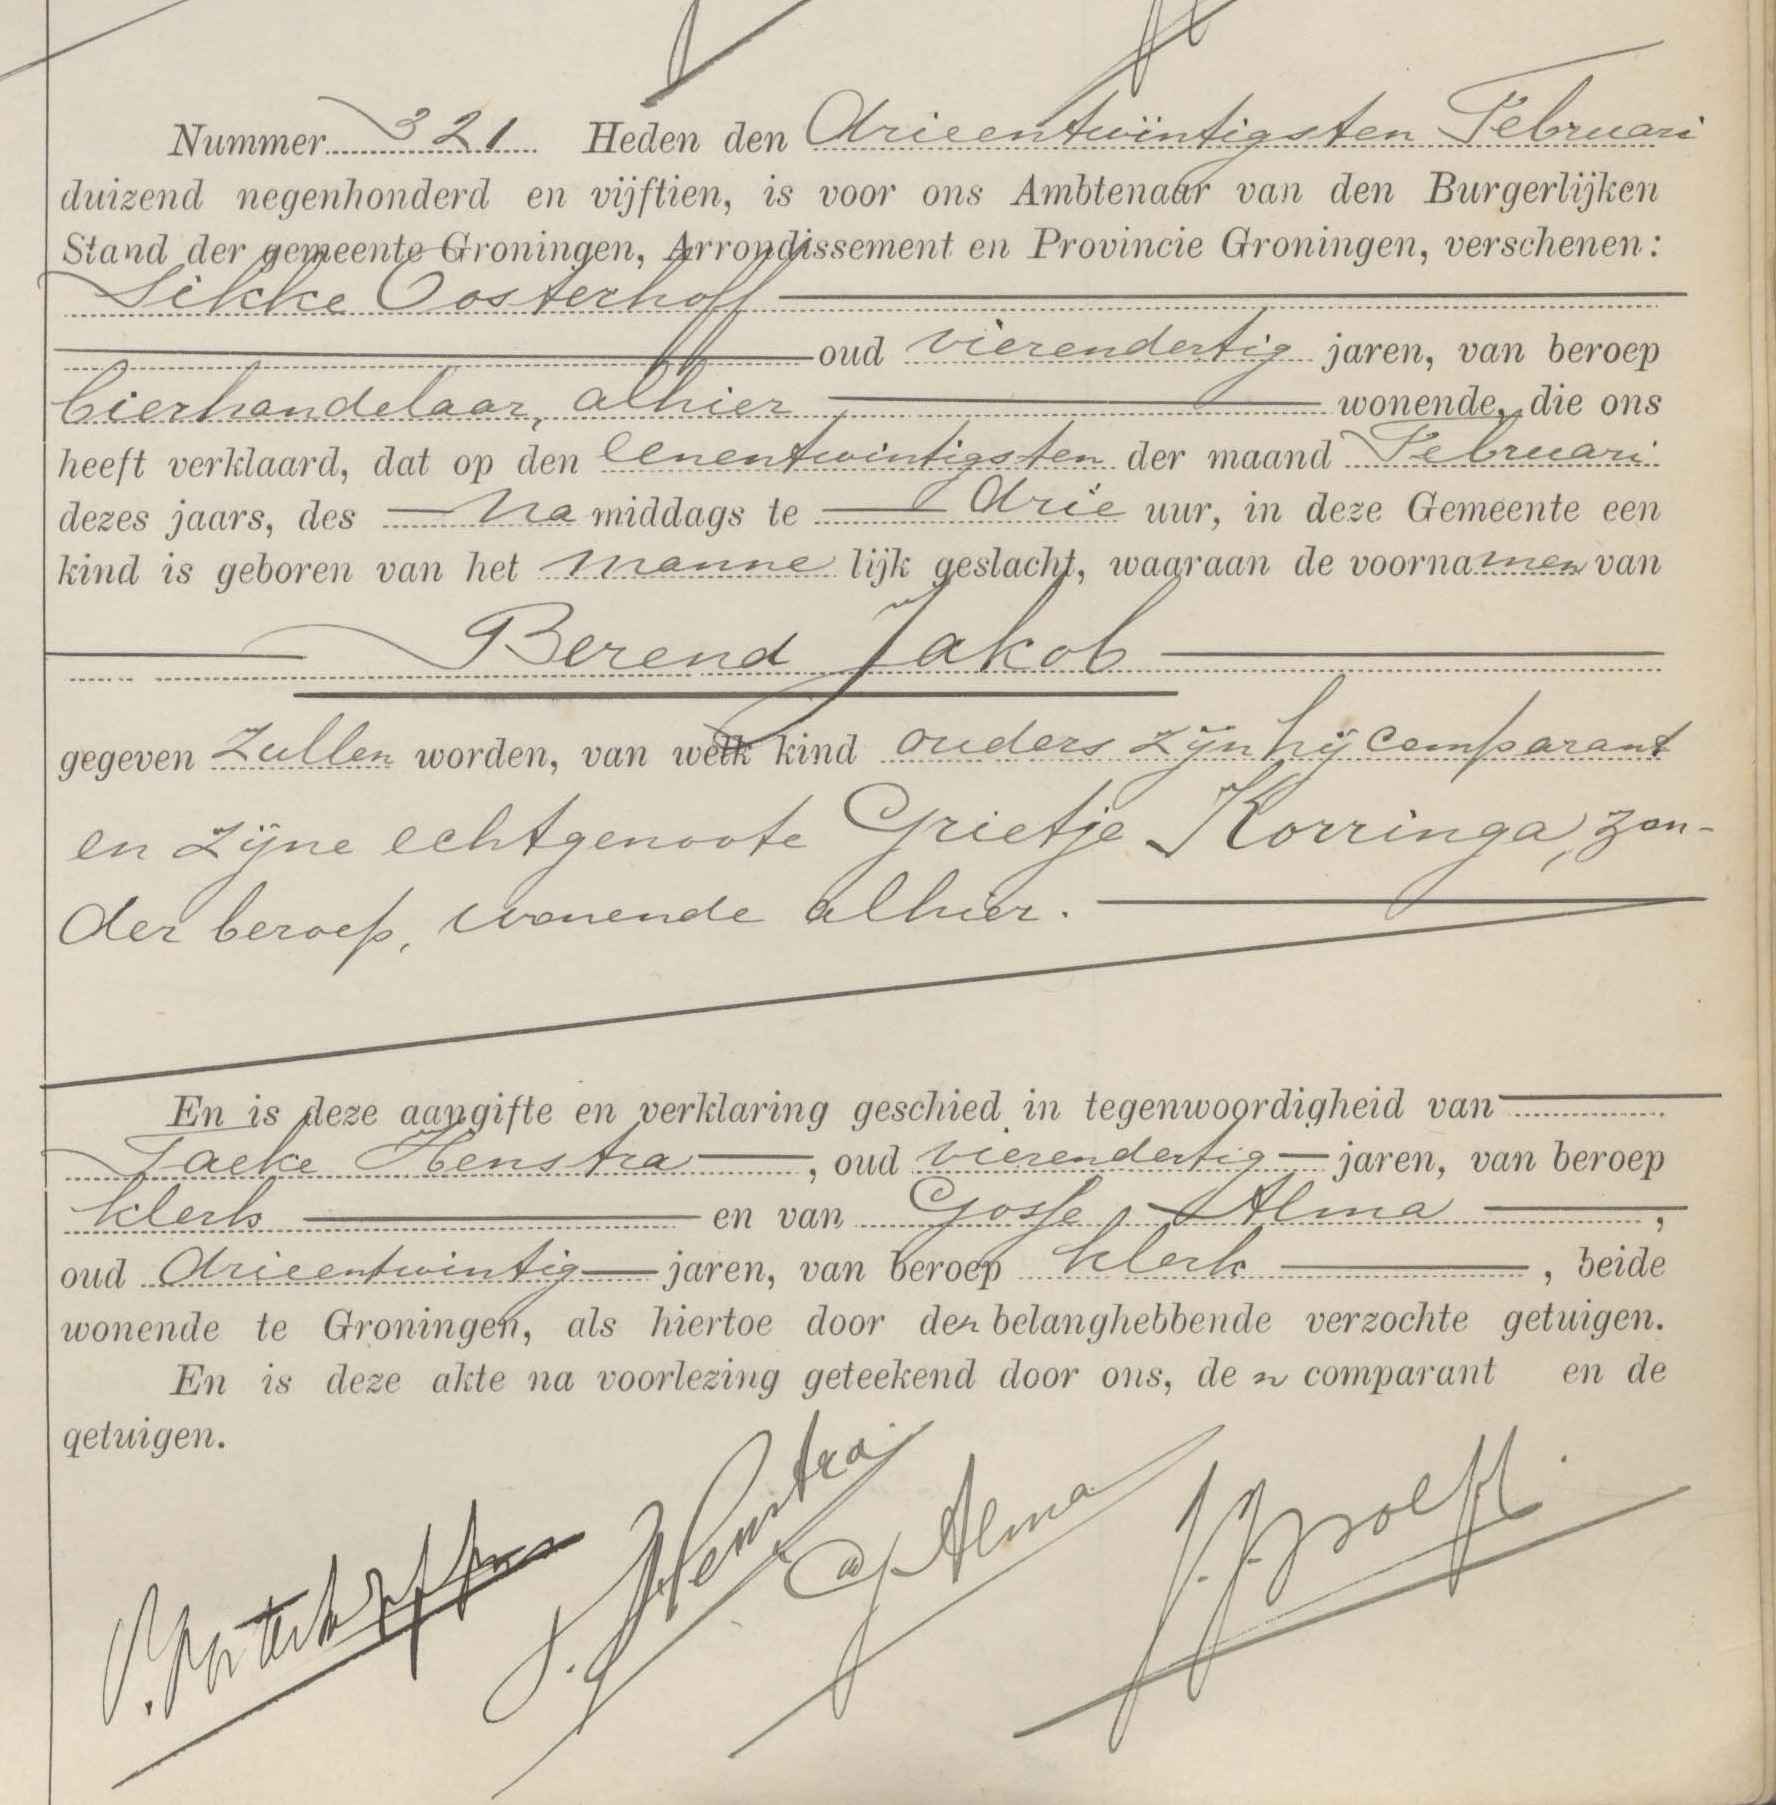 Nummer 321 Heden den drieentwintigsten Februari
duizend negenhonderd en vijftien, is voor ons Ambtenaar van den Burgerlijken
Stand der gemeente Groningen, Arrondissement en Provincie Groningen, verschenen:
Sikke Oosterhoff
oud vierendertig jaren, van beroep
bierhandelaar, alhier wonende, die ons
heeft verklaard, dat op den eenentwintigsten der maand Februari
dezes jaars, des na middags te drie uur, in deze Gemeente een
kind is geboren van het manne lijk geslacht, waaraan de voornamen van
Berend Jakob
gegeven zullen worden, van welk kind ouders zijn hij comparant
en zijne echtgenoote Grietje Korringa, zon-
der beroep, wonende alhier.
En is deze aangifte en verklaring geschied in tegenwoordigheid van
Taeke Henstra, oud vierendertig jaren, van beroep
klerk en van Gosse Alma,
oud drieentwintig jaren, van beroep klerk, beide
wonende te Groningen, als hiertoe door den belanghebbende verzochte getuigen.
En is deze akte na voorlezing geteekend door ons, den comparant en de
getuigen.
S. Oosterhoff T. Henstra G. Alma